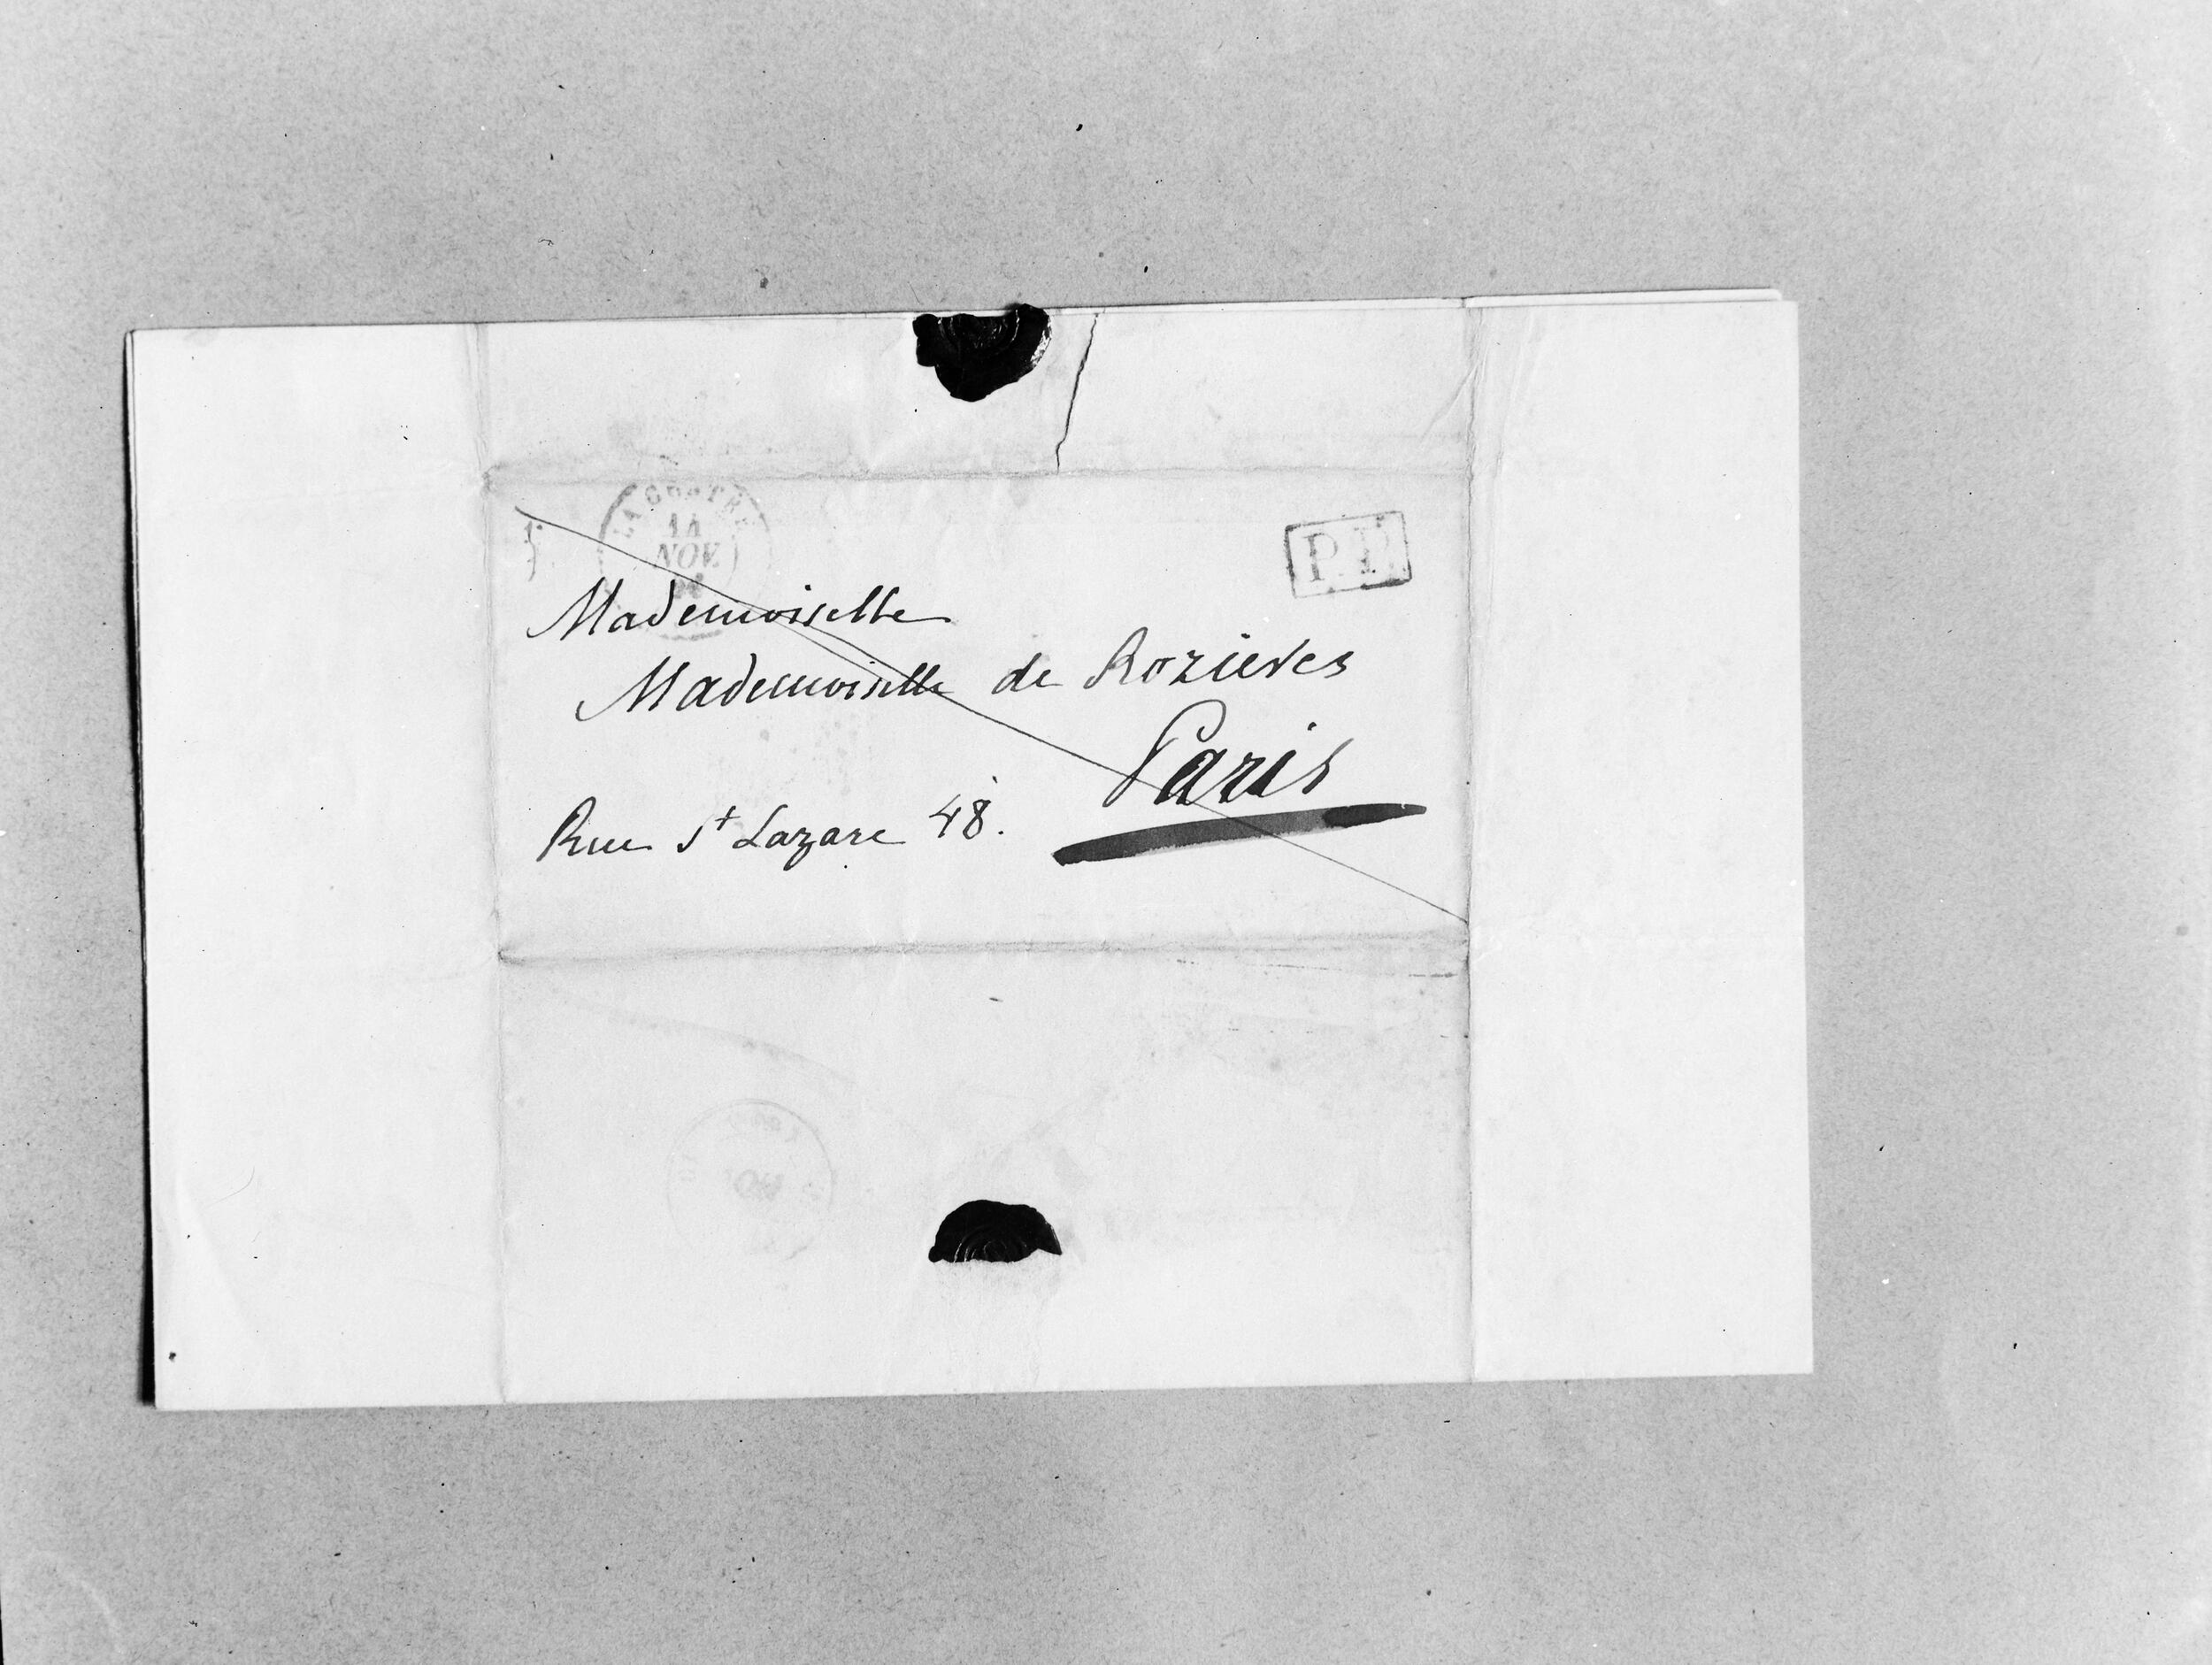 LA CHATRE
11
NOV.
P.P.
Mademoiselle
Mademoiselle de Rozieres
Paris
Rue St Lazare 48.